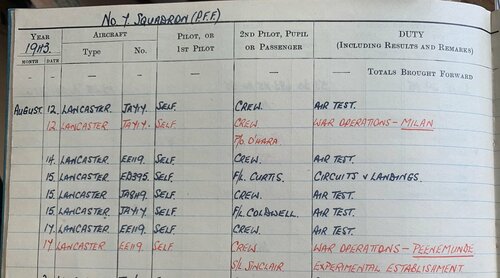 No 7. SQUADRON (P.F.F.)
YEAR AIRCRAFT PILOT, OR 2ND PILOT, PUPIL DUTY
1943. Type No. 1ST PILOT OR PASSENGER (INCLUDING RESULTS AND REMARKS)
MONTH DATE
TOTALS BROUGHT FORWARD
AUGUST. 12. LANCASTER JA717. SELF. CREW. AIR TEST.
12 LANCASTER JA717. SELF. CREW WAR OPERATIONS - MILAN
F/O. O'HARA.
14. LANCASTER EE119. SELF. CREW. AIR TEST.
15. LANCASTER ED395. SELF. F/L. CURTIS. CIRCUITS & LANDINGS.
15. LANCASTER JA849. SELF. CREW. AIR TEST.
15. LANCASTER JA717 SELF. F/L. COLDWELL. AIR TEST.
17. LANCASTER EE119. SELF. CREW. AIR TEST.
17 LANCASTER EE119. SELF CREW WAR OPERATIONS - PEENEMUNDE
S/L. SINCLAIR EXPERIMENTAL ESTABLISMENT